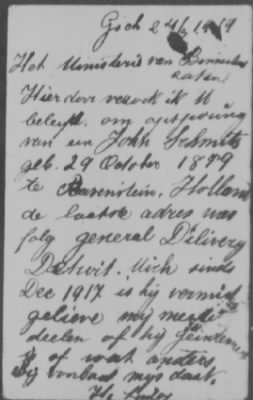 Gsch 24/6 1919
Het Ministerie van Binnenl
zaken
Hierdoor verzoek ik U
beleefd. om opsporing
van een John Schmitz
geb. 29 October 1889
te Barenstein, Holland
de laatste adres was
folg general Dilivery
Detroit. Mich sinds
Dec 1917 is hij vermist
gelieve mij mede
deelen of hij geinterneerd
of wat anders
Bij voorbaat mijn dank.